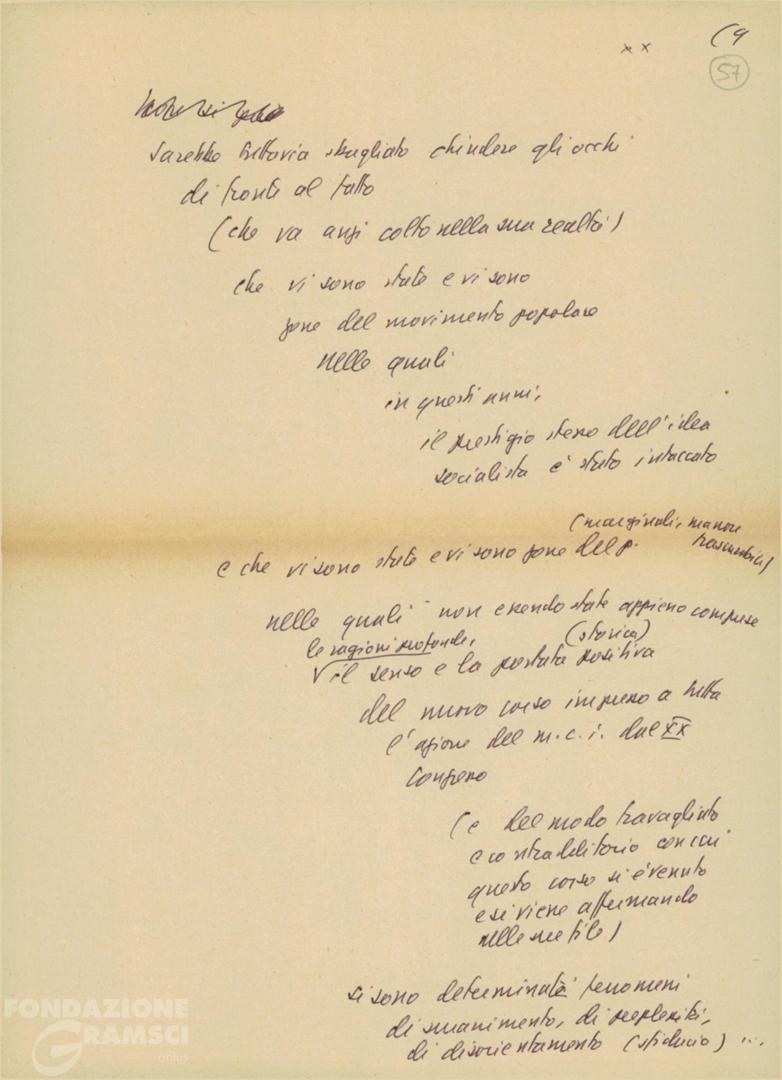 x x
(9
57
Sarebbe tuttavia sbagliato chiudere gli occhi
di fronte al fatto
(che va anzi colto nella sua realtà)
che vi sono state e vi sono
zone del movimento popolare
nelle quali
in questi anni,
il prestigio stesso dell'idea
socialista è stato intaccato
(marginali, ma non
trascurabili)
e che vi sono state e vi sono zone del p.
nelle quali non essendo state appieno comprese
le ragioni profonde,
(storica)
il senso e la portata positiva
del nuovo corso impresso a tutta
l'azione del m.c.i. dal XX
Congresso
(e del modo travagliato
e contraddittorio con cui
questo corso si è venuto
e si viene affermando
nelle sue file)
si sono determinati fenomeni
di smarrimento, di perplessità,
di disorientamento (sfiducia) ...
FONDAZIONE
GRAMSCI
onlus